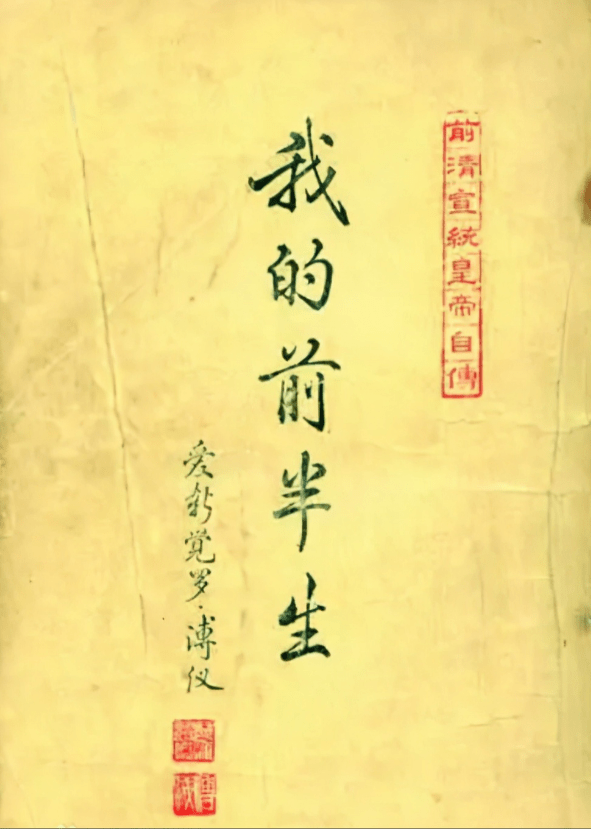 前清宣統皇帝自傳
我的前半生
爱新觉罗·溥仪